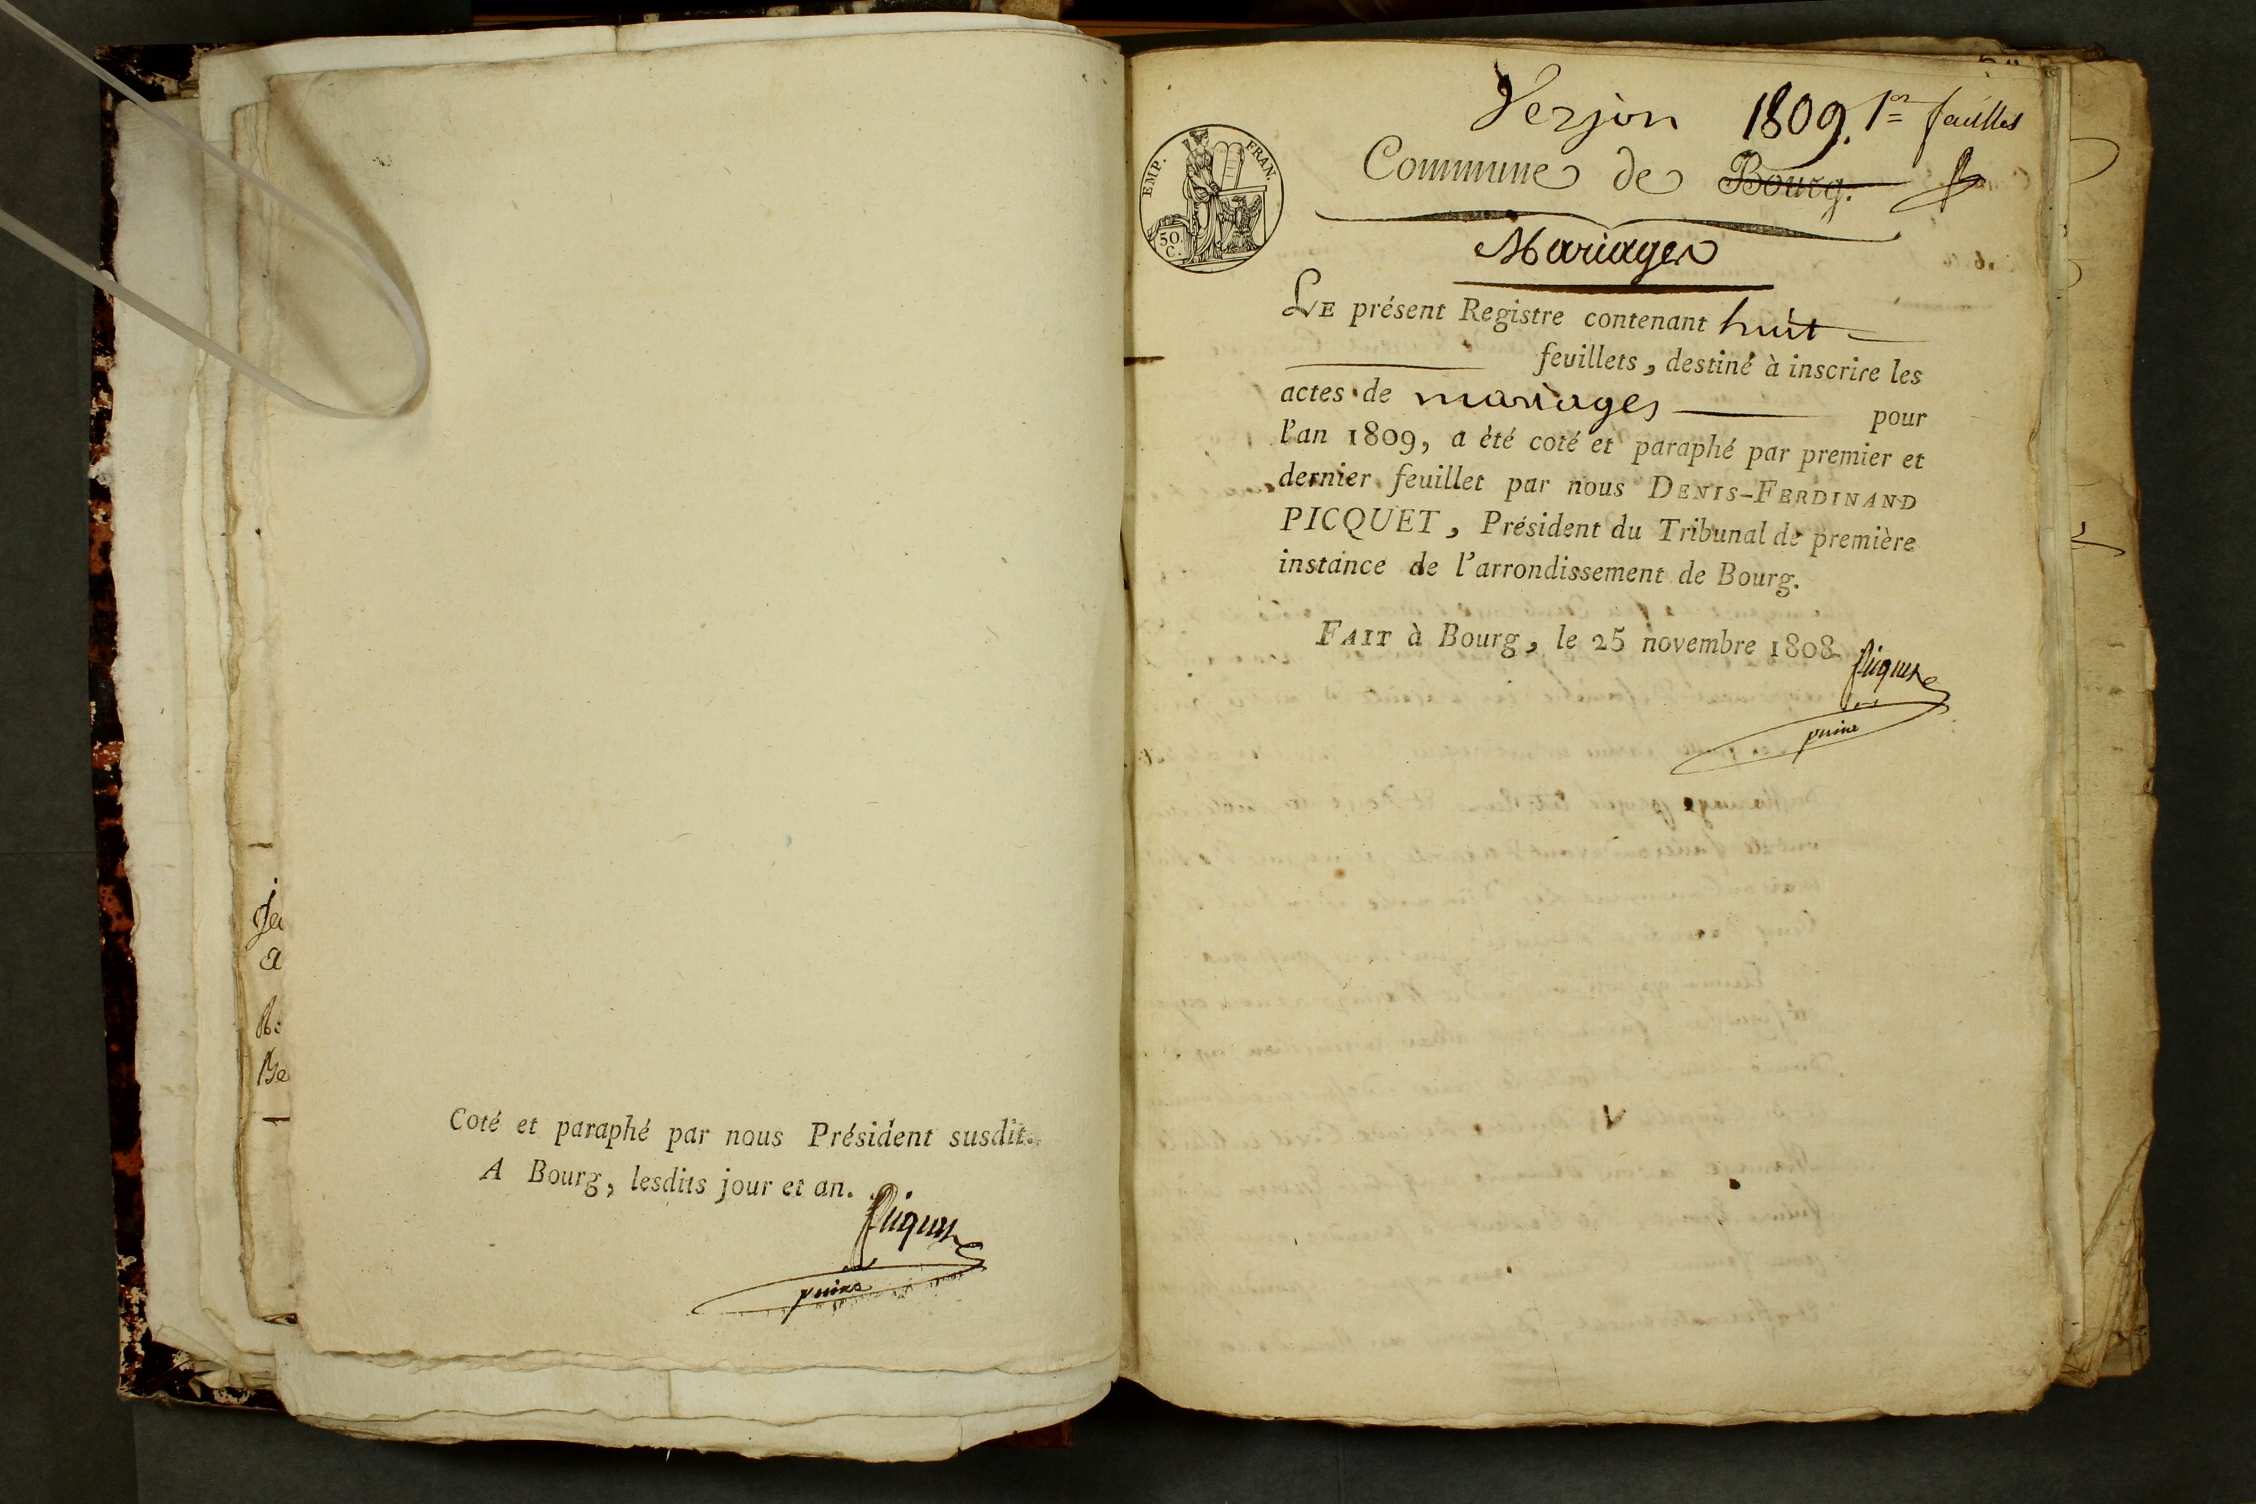 Coté et paraphé par nous Président susdit.
A Bourg, lesdits jour et an.
Picquet
puiné
Verjon 1809. 1er feuillet
EMP. FRAN.
50. C.
Commune de Bourg.
Mariages
LE présent Registre contenant huit
feuillets, destiné à inscrire les
actes de mariages pour
l'an 1809, a èté coté et paraphé par premier et
dernier feuillet par nous DENIS-FERDINAND
PICQUET, Président du Tribunal de première
instance de l'arrondissement de Bourg.
FAIT à Bourg, le 25 novembre 1808
Picquet
puiné